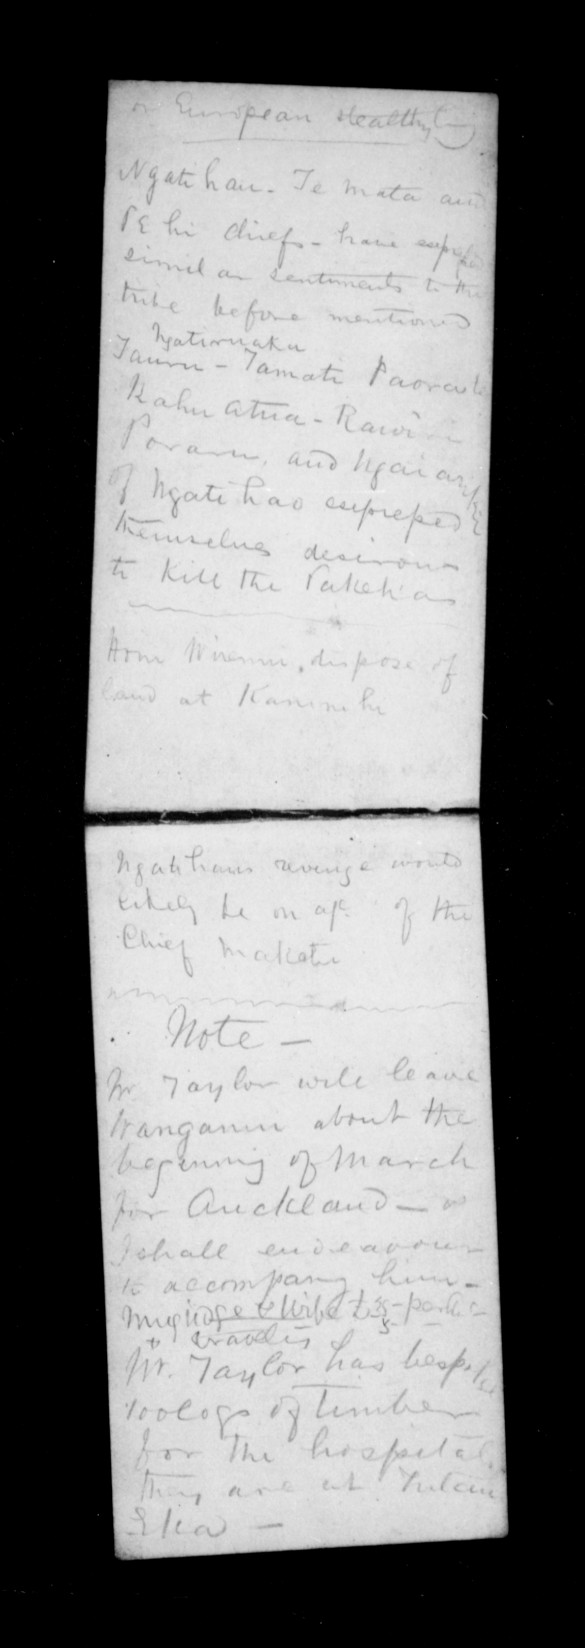 or European stealthy
Ngatihau - Te Mata and
PEhi chiefs - have expressed
similar sentiments to the
tribe before mentioned
Ngatiruaka
Tauru - Tamati Paora
Kahu Atua - Rawiri
and Ngai
of Ngatihao expressed
themselves desirous
to kill the Pakehas
Wiremu, dispose of
land at
Ngatihaus revenge would
likely be on of the
Chief Maketu
Note -
Mr Taylor will leave
Wanganui about the
beginning of March
for Auckland -
I shall endeavour
to accompany him -
& Wife
travels
Mr. Taylor has bespoke
100 logs of Timber
for the hospital.
they are at